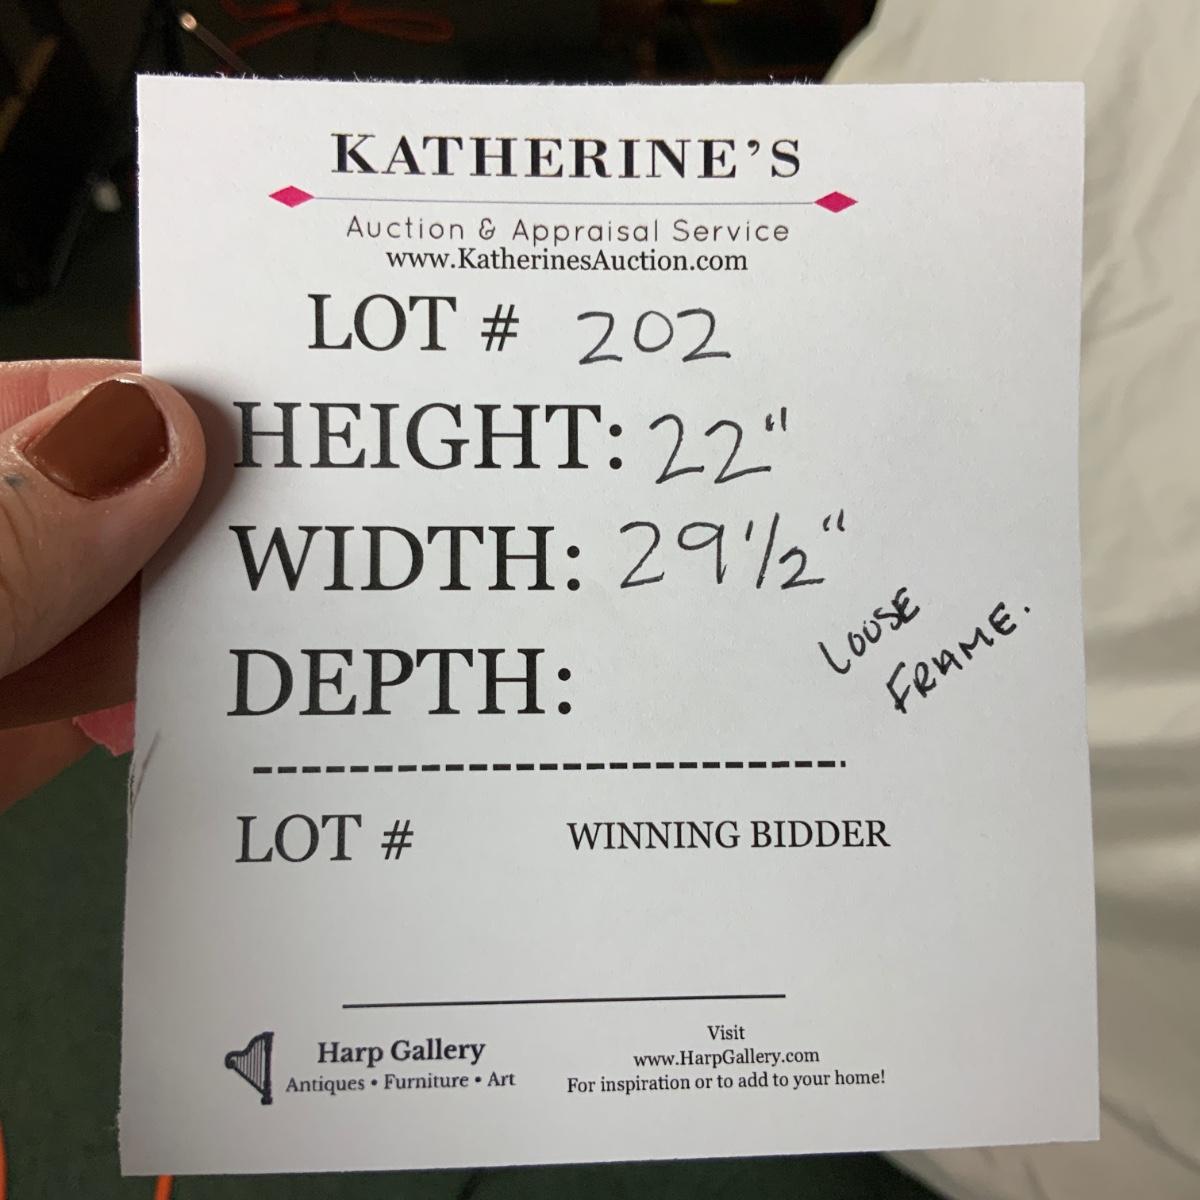 KATHERINE'S
Auction & Appraisal Service
www.KatherinesAuction.com
LOT # 202
HEIGHT: 22"
WIDTH: 29 1/2"
LOOSE
FRAME.
DEPTH:
LOT # WINNING BIDDER
Harp Gallery
Antiques • Furniture • Art
Visit
www.HarpGallery.com
For inspiration or to add to your home!